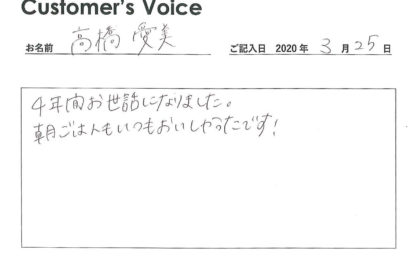 Customer's Voice
お名前 高橋 愛美 ご記入日 2020年 3月25日
4年間お世話になりました。
朝ごはんもいつもおいしかったです!